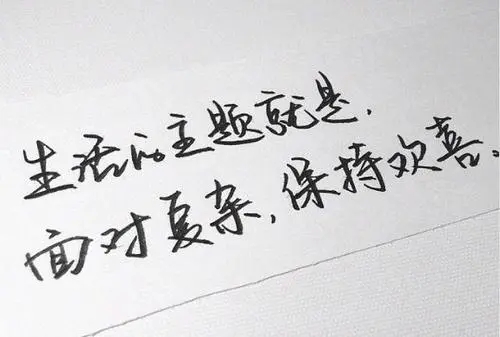 生活的主题就是,
面对复杂,保持欢喜.